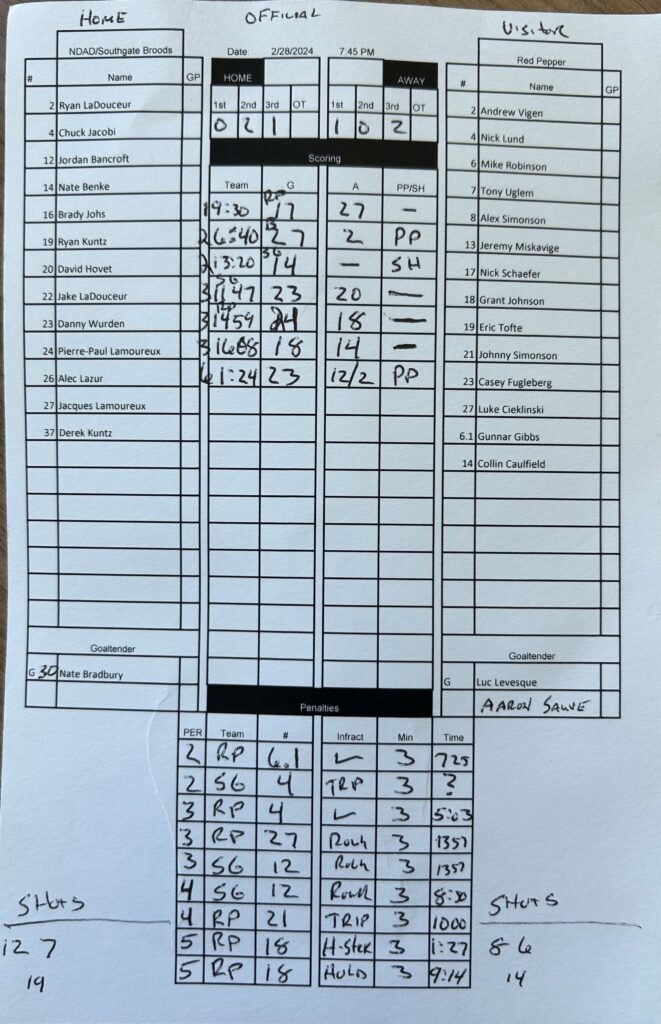 HOME OFFICIAL Visitor
NDAD/Southgate Broods Date: 2/28/2024 7:45 PM Red Pepper
# Name GP HOME AWAY # Name GP
1st 2nd 3rd OT 1st 2nd 3rd OT
0 2 1 1 0 2
2 Ryan LaDouceur
4 Chuck Jacobi
12 Jordan Bancroft
14 Nate Benke
16 Brady Johs
19 Ryan Kuntz
20 David Hovet
22 Jake LaDouceur
23 Danny Wurden
24 Pierre-Paul Lamoureux
26 Alec Lazur
27 Jacques Lamoureux
37 Derek Kuntz
Goaltender
G 30 Nate Bradbury
Scoring
Team G A PP/SH
1 9:30 RP 17 27 —
2 6:40 27 2 PP
2 13:20 SG 14 — SH
3 1147 SG 23 20 —
3 1459 RP 24 18 —
3 18 14 —
6 1:24 23 12/2 PP
2 Andrew Vigen
4 Nick Lund
6 Mike Robinson
7 Tony Uglem
8 Alex Simonson
13 Jeremy Miskavige
17 Nick Schaefer
18 Grant Johnson
19 Eric Tofte
21 Johnny Simonson
23 Casey Fugleberg
27 Luke Cieklinski
6.1 Gunnar Gibbs
14 Collin Caulfield
Goaltender
G Luc Levesque
AARON SAUVE
Penalties
PER Team # Infract Min Time
2 RP 6.1 3 725
2 SG 4 TRP 3 ?
3 RP 4 3 5:03
3 RP 27 Rouh 3 1357
3 SG 12 Rouh 3 1357
4 SG 12 Rouh 3 8:30
4 RP 21 TRIP 3 1000
5 RP 18 H-Stek 3 1:27
5 RP 18 HOLD 3 9:14
SHOTS
12 7
19
SHOTS
8 6
14